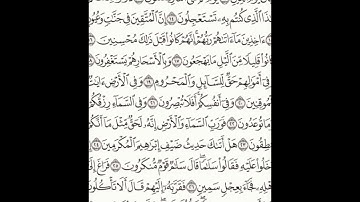 ذَا ٱلَّذِى كُنتُم بِهِۦ تَسْتَعْجِلُونَ ١٤ إِنَّ ٱلْمُتَّقِينَ فِى جَنَّٰتٍ وَعُيُونٍ
ءَاخِذِينَ مَآ ءَاتَىٰهُمْ رَبُّهُمْ إِنَّهُمْ كَانُوا۟ قَبْلَ ذَٰلِكَ مُحْسِنِينَ
كَانُوا۟ قَلِيلًا مِّنَ ٱلَّيْلِ مَا يَهْجَعُونَ ١٧ وَبِٱلْأَسْحَارِ هُمْ يَسْتَغْفِرُونَ
فِىٓ أَمْوَٰلِهِمْ حَقٌّ لِّلسَّآئِلِ وَٱلْمَحْرُومِ ١٩ وَفِى ٱلْأَرْضِ ءَايَٰتٌ
مُوقِنِينَ ٢٠ وَفِىٓ أَنفُسِكُمْ أَفَلَا تُبْصِرُونَ ٢١ وَفِى ٱلسَّمَآءِ رِزْقُكُمْ
مَا تُوعَدُونَ ٢٢ فَوَرَبِّ ٱلسَّمَآءِ وَٱلْأَرْضِ إِنَّهُۥ لَحَقٌّ مِّثْلَ مَآ أَنَّكُمْ
طِقُونَ ٢٣ هَلْ أَتَىٰكَ حَدِيثُ ضَيْفِ إِبْرَٰهِيمَ ٱلْمُكْرَمِينَ ٢٤
خَلُوا۟ عَلَيْهِ فَقَالُوا۟ سَلَٰمًا قَالَ سَلَٰمٌ قَوْمٌ مُّنكَرُونَ ٢٥
هْلِهِۦ فَجَآءَ بِعِجْلٍ سَمِينٍ ٢٦ فَقَرَّبَهُۥٓ إِلَيْهِمْ قَالَ أَلَا تَأْكُلُونَ